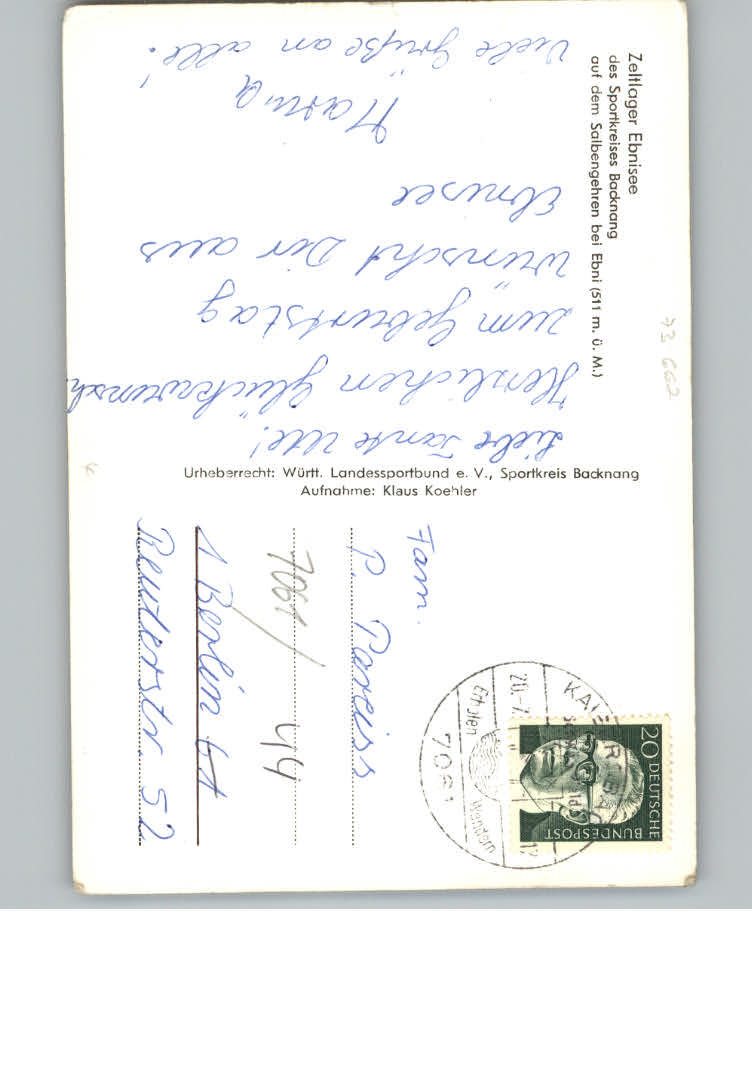 Zeltlager Ebnisee
des Sportkreises Backnang
auf dem Salbengehren bei Ebni (511 m. ü. M.)
Liebe Tante Ute!
Herzlichen Glückwunsch
zum Geburtstag
wünscht Dir aus
Ebnisee
Viele Grüße an alle!
Urheberrecht: Württ. Landessportbund e. V., Sportkreis Backnang
Aufnahme: Klaus Koehler
Fam.
P.
7061/
44
1 Berlin 61
52
20 DEUTSCHE
BUNDESPOST
20.-7.
Erholen
Wandern
7061
73 662